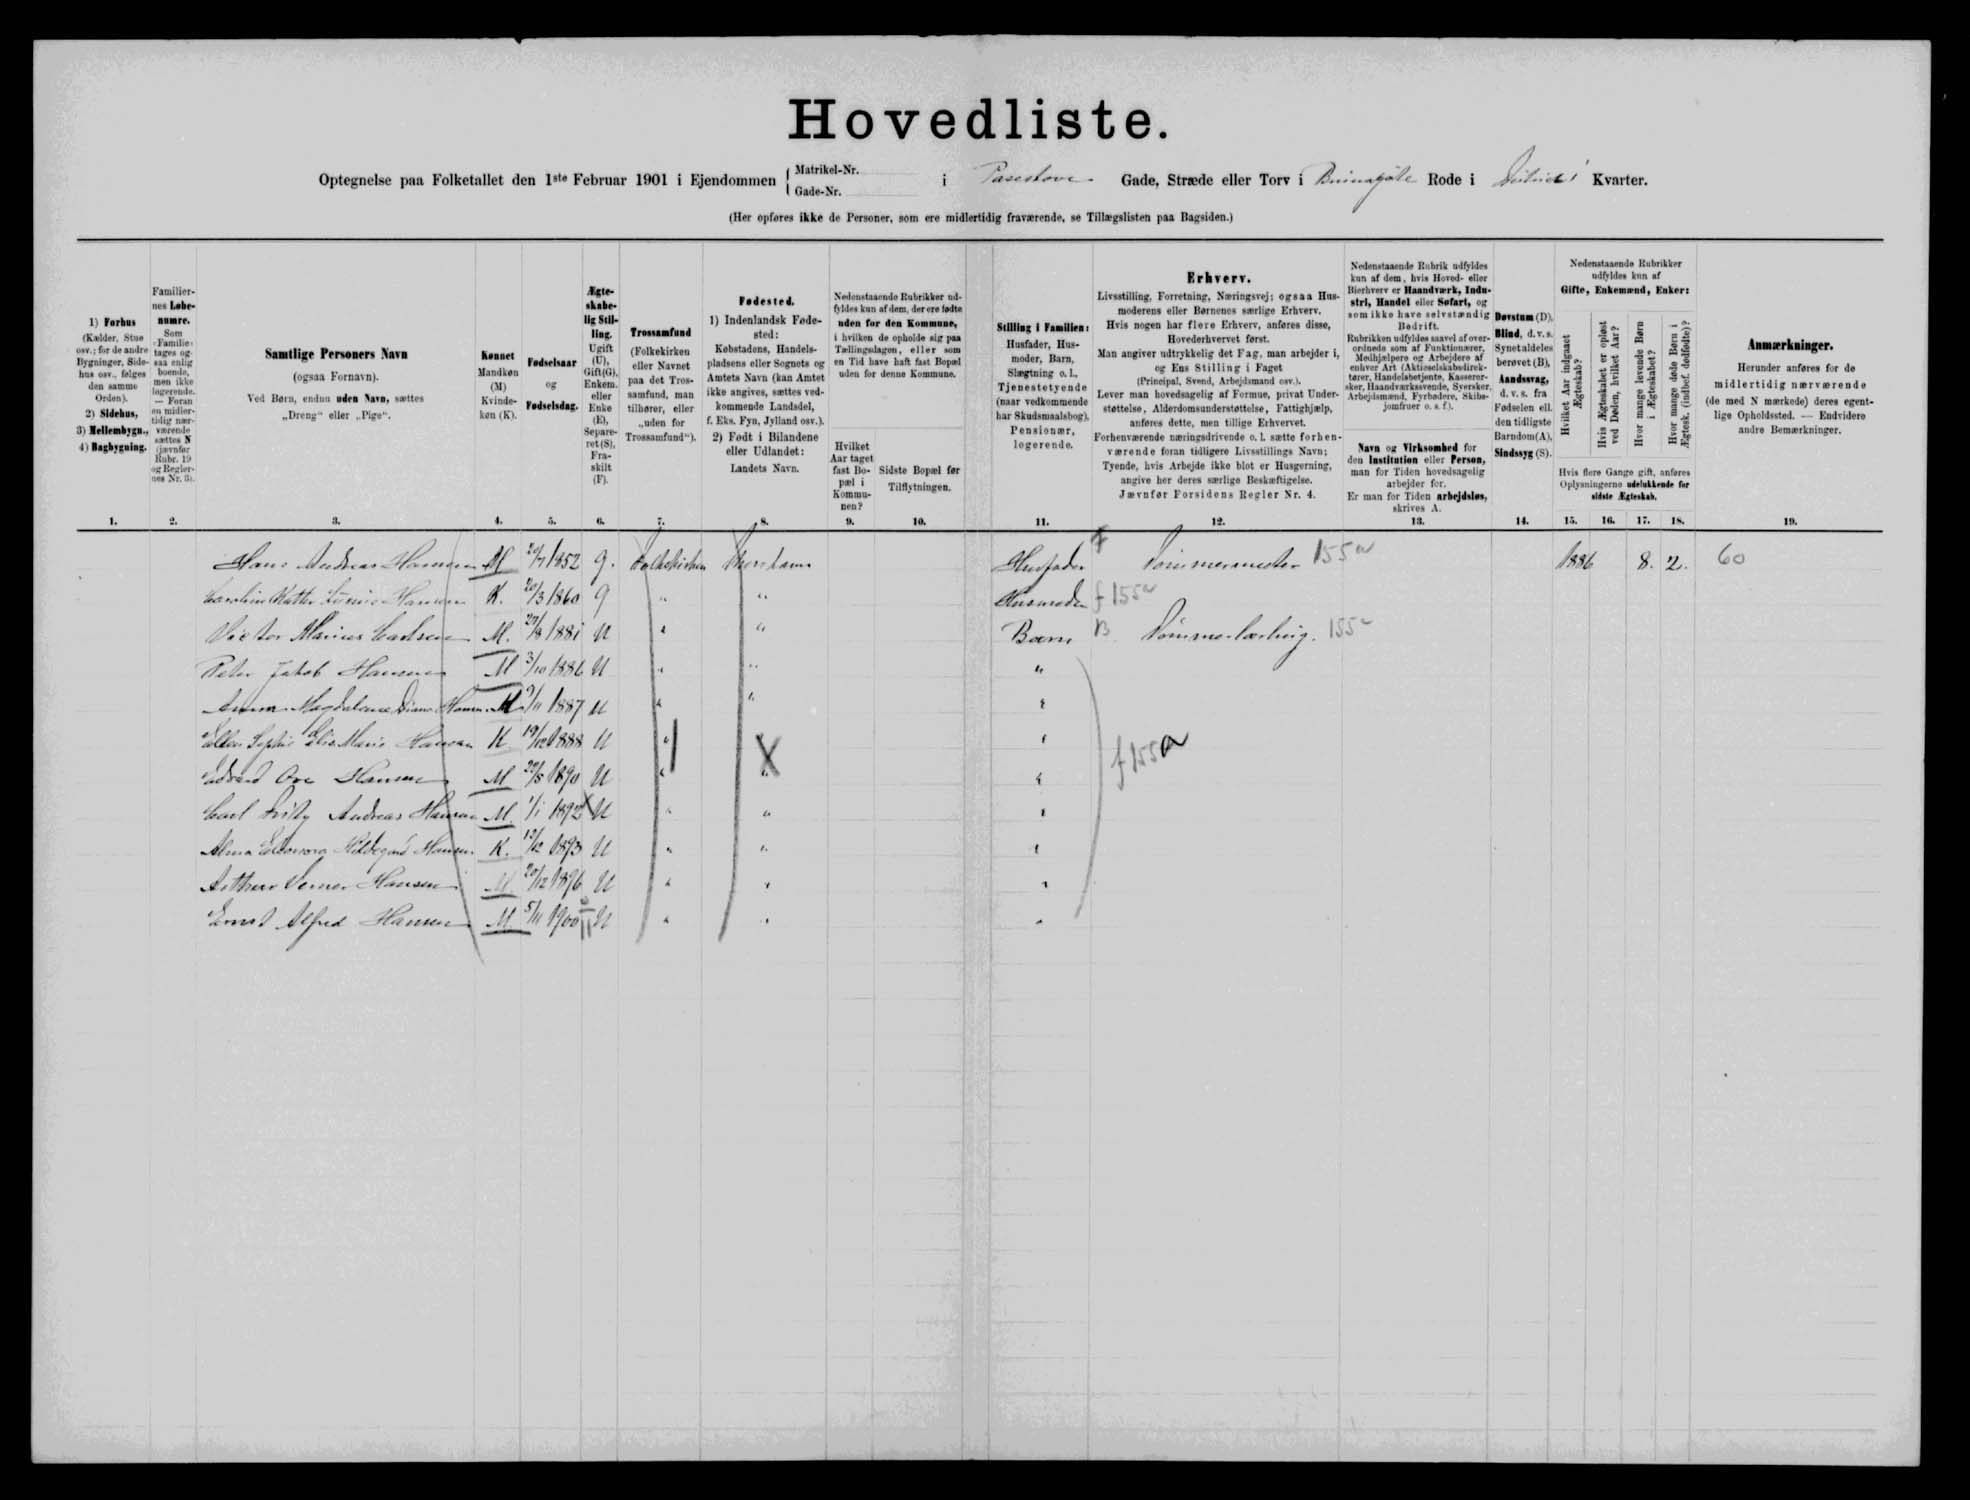 Hovedliste.
Optegnelse paa Folketallet den 1ste Februar 1901 i Ejendommen { Matrikel-Nr. Gade-Nr. i Gade, Stræde eller Torv i Rode i Kvarter.
(Her opføres ikke de Personer, som ere midlertidig fraværende, se Tillægslisten paa Bagsiden.)
1) Forhus
(Kælder, Stue
osv.; for de andre
Bygninger, Side-
hus osv., følges
den samme
Orden).
2) Sidehus,
3) Mellembygn.,
4) Bagbygning.
Familier-
nes Løbe-
numre.
Som
Familie
tages og-
saa enlig
boende,
men ikke
logerende.
— Foran
en midler-
tidig nær-
værende
sættes N
(jævnfør
Rubr. 19
og Regler-
nes Nr. 3).
Samtlige Personers Navn
(ogsaa Fornavn).
Ved Børn, endnu uden Navn, sættes
„Dreng“ eller „Pige“.
Kønnet
Mandkøn
(M)
Kvinde-
køn (K).
Fødselsaar
og
Fødselsdag.
Ægte-
skabe-
lig Stil-
ling.
Ugift
(U),
Gift(G),
Enkem.
eller
Enke
(E),
Separe-
ret (S),
Fra-
skilt
(F).
Trossamfund
(Folkekirken
eller Navnet
paa det Tros-
samfund, man
tilhører, eller
„uden for
Trossamfund“).
Fødested.
1) Indenlandsk Føde-
sted:
Købstadens, Handels-
pladsens eller Sognets og
Amtets Navn (kan Amtet
ikke angives, sættes ved-
kommende Landsdel,
f. Eks. Fyn, Jylland osv.).
2) Født i Bilandene
eller Udlandet:
Landets Navn.
Nedenstaaende Rubrikker ud-
fyldes kun af dem, der ere fødte
uden for den Kommune,
i hvilken de opholde sig paa
Tællingsdagen, eller som
en Tid have haft fast Bopæl
uden for denne Kommune.
Hvilket
Aar taget
fast Bo-
pæl i
Kommu-
nen?
Sidste Bopæl før
Tilflytningen.
Stilling i Familien:
Husfader, Hus-
moder, Barn,
Slægtning o. l.,
Tjenestetyende
(naar vedkommende
har Skudsmaalsbog),
Pensionær,
logerende.
Erhverv.
Livsstilling, Forretning, Næringsvej; ogsaa Hus-
moderens eller Børnenes særlige Erhverv.
Hvis nogen har flere Erhverv, anføres disse,
Hovederhvervet først.
Man angiver udtrykkelig det Fag, man arbejder i,
og Ens Stilling i Faget
(Principal, Svend, Arbejdsmand osv.).
Lever man hovedsagelig af Formue, privat Under-
støttelse, Alderdomsunderstøttelse, Fattighjælp,
anføres dette, men tillige Erhvervet.
Forhenværende næringsdrivende o. l. sætte forhen-
værende foran tidligere Livsstillings Navn;
Tyende, hvis Arbejde ikke blot er Husgerning,
angive her deres særlige Beskæftigelse.
Jævnfør Forsidens Regler Nr. 4.
Nedenstaaende Rubrik udfyldes
kun af dem, hvis Hoved- eller
Bierhverv er Haandværk, Indu-
stri, Handel eller Søfart, og
som ikke have selvstændig
Bedrift.
Rubrikken udfyldes saavel af over-
ordnede som af Funktionærer,
Medhjælpere og Arbejdere af
enhver Art (Aktieselskabsdirek-
tører, Handelsbetjente, Kasserer-
sker, Haandværkssvende, Syersker,
Arbejdsmænd, Fyrbødere, Skibs-
jomfruer o. s. f.).
Navn og Virksomhed for
den Institution eller Person,
man for Tiden hovedsagelig
arbejder for.
Er man for Tiden arbejdsløs,
skrives A.
Døvstum (D),
Blind, d. v. s.
Synet aldeles
berøvet (B),
Aandssvag,
d. v. s. fra
Fødselen ell.
den tidligste
Barndom(A),
Sindssyg (S).
Nedenstaaende Rubrikker
udfyldes kun af
Gifte, Enkemænd, Enker:
Hvilket Aar indgaaet
Ægteskab?
Hvis Ægteskabet er opløst
ved Døden, hvilket Aar?
Hvor mange levende Børn
i Ægteskabet?
Hvor mange døde Børn i
Ægtesk. (indbef. dødfødte)?
Hvis flere Gange gift, anføres
Oplysningerne udelukkende for
sidste Ægteskab.
Anmærkninger.
Herunder anføres for de
midlertidig nærværende
(de med N mærkede) deres egent-
lige Opholdssted. — Endvidere
andre Bemærkninger.
1. 2. 3. 4. 5. 6. 7. 8. 9. 10. 11. 12. 13. 14. 15. 16. 17. 18. 19.
Hans Andreas Hansen M 1852 g. Folkekirken Thorshavn Husfader Tømmermester 155a 1886 8. 2. 60
Hansen K. 20/3 1860 g " " Husmoder f 155a
Victor Marius M. 1881 U " " Barn B Tømmerlærling. 155a
Peter Jakob Hansen M 3/10 1886 U " " "
Anna Magdalena Hansen 9/11 1887 U " " "
Ellen Sophie Marie Hansen K 19/12 1888 U " X " f 155a
Edvard Ove Hansen M 22/8 1890 U " " "
Carl Andreas Hansen M. 1/1 1892 U " " "
Alma Eleonora Hildegard Hansen K. 13/12 1893 U " " "
Arthur Verner Hansen M 20/12 1896 U " " "
Ernst Alfred Hansen M. 5/11 1900 U " " "